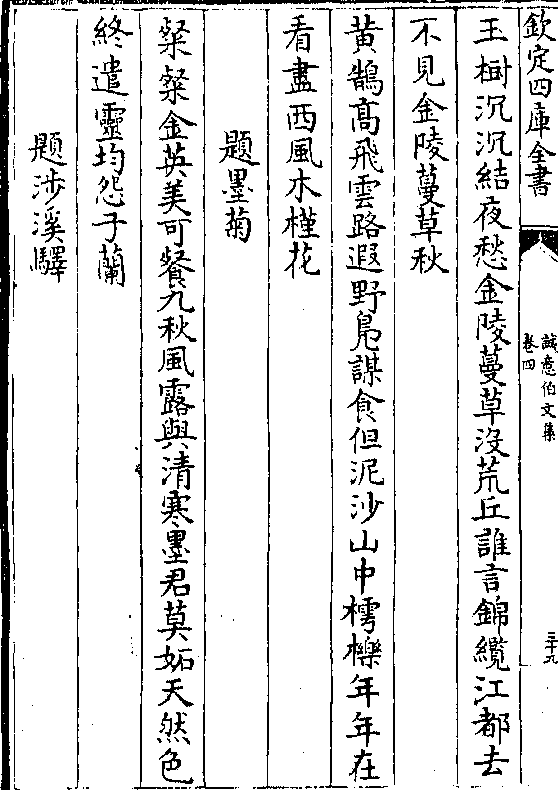 欽定四庫全書
誠意伯文集
卷四
三十九
玉樹沉沉結夜愁金陵蔓草沒荒丘誰言錦纜江都去
不見金陵蔓草秋
黃鵠髙飛雲路遐野鳧謀食但泥沙山中樗櫟年年在
看盡西風木槿花
題墨菊
粲粲金英美可餐九秋風露與清寒墨君莫妬天然色
終遣靈均怨子蘭
題涉溪驛